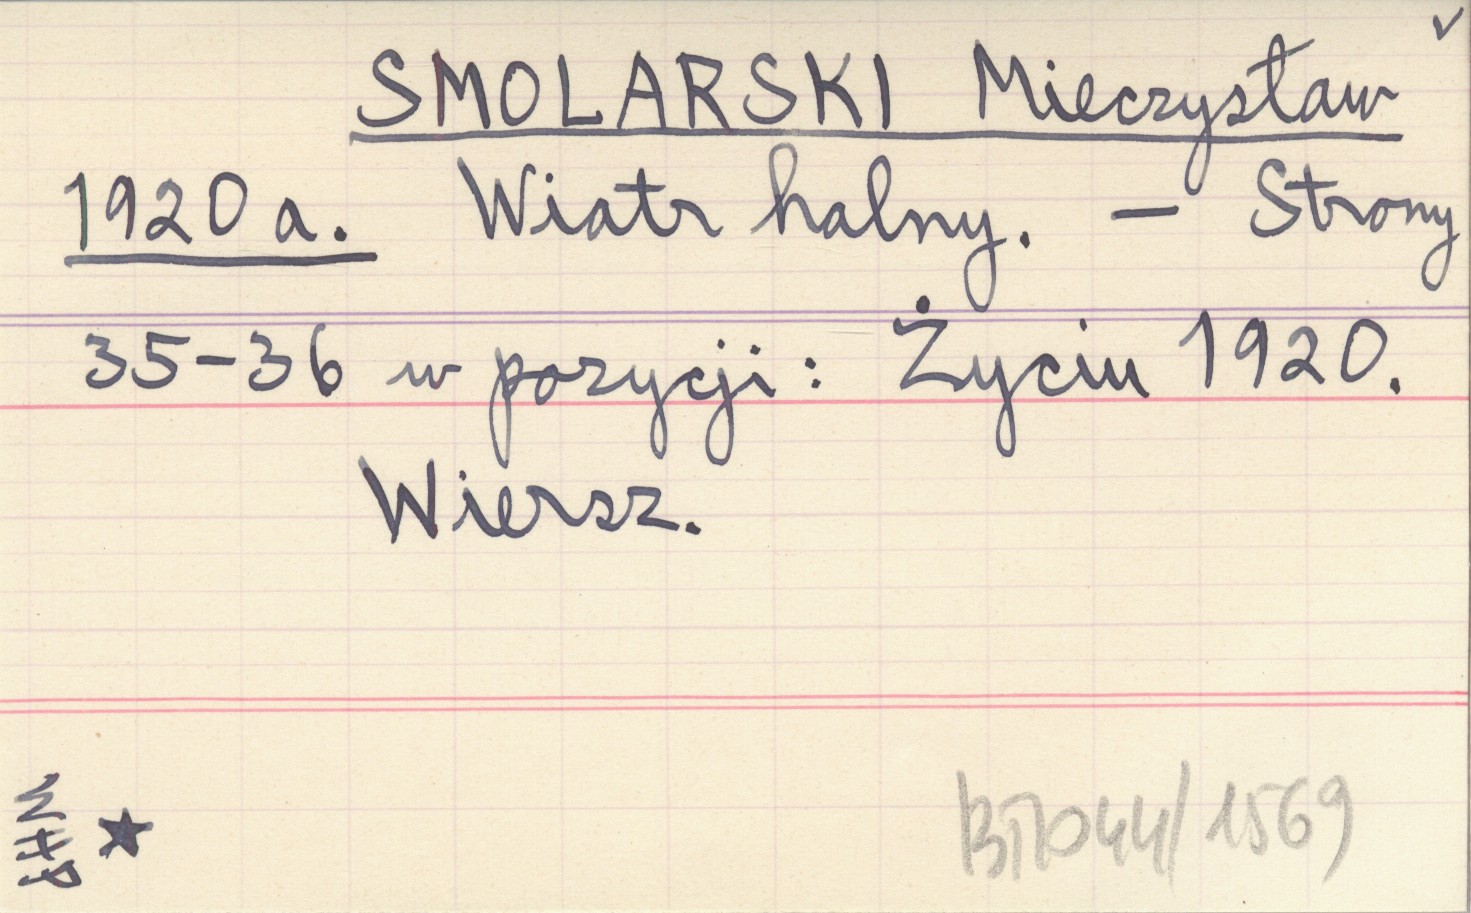 ✓
SMOLARSKI Mieczysław
1920 a. Wiatr halny. — Strony
35-36 w pozycji: Życiu 1920.
Wiersz.
WHP
★